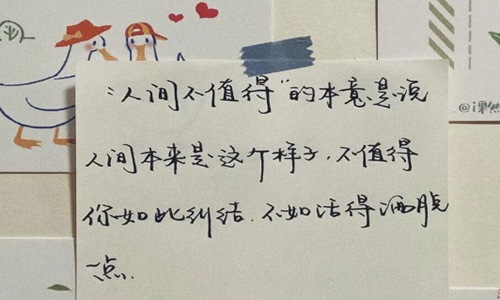 “人间不值得”的本意是说
人间本来是这个样子，不值得
你如此纠结．不如活得洒脱
一点．